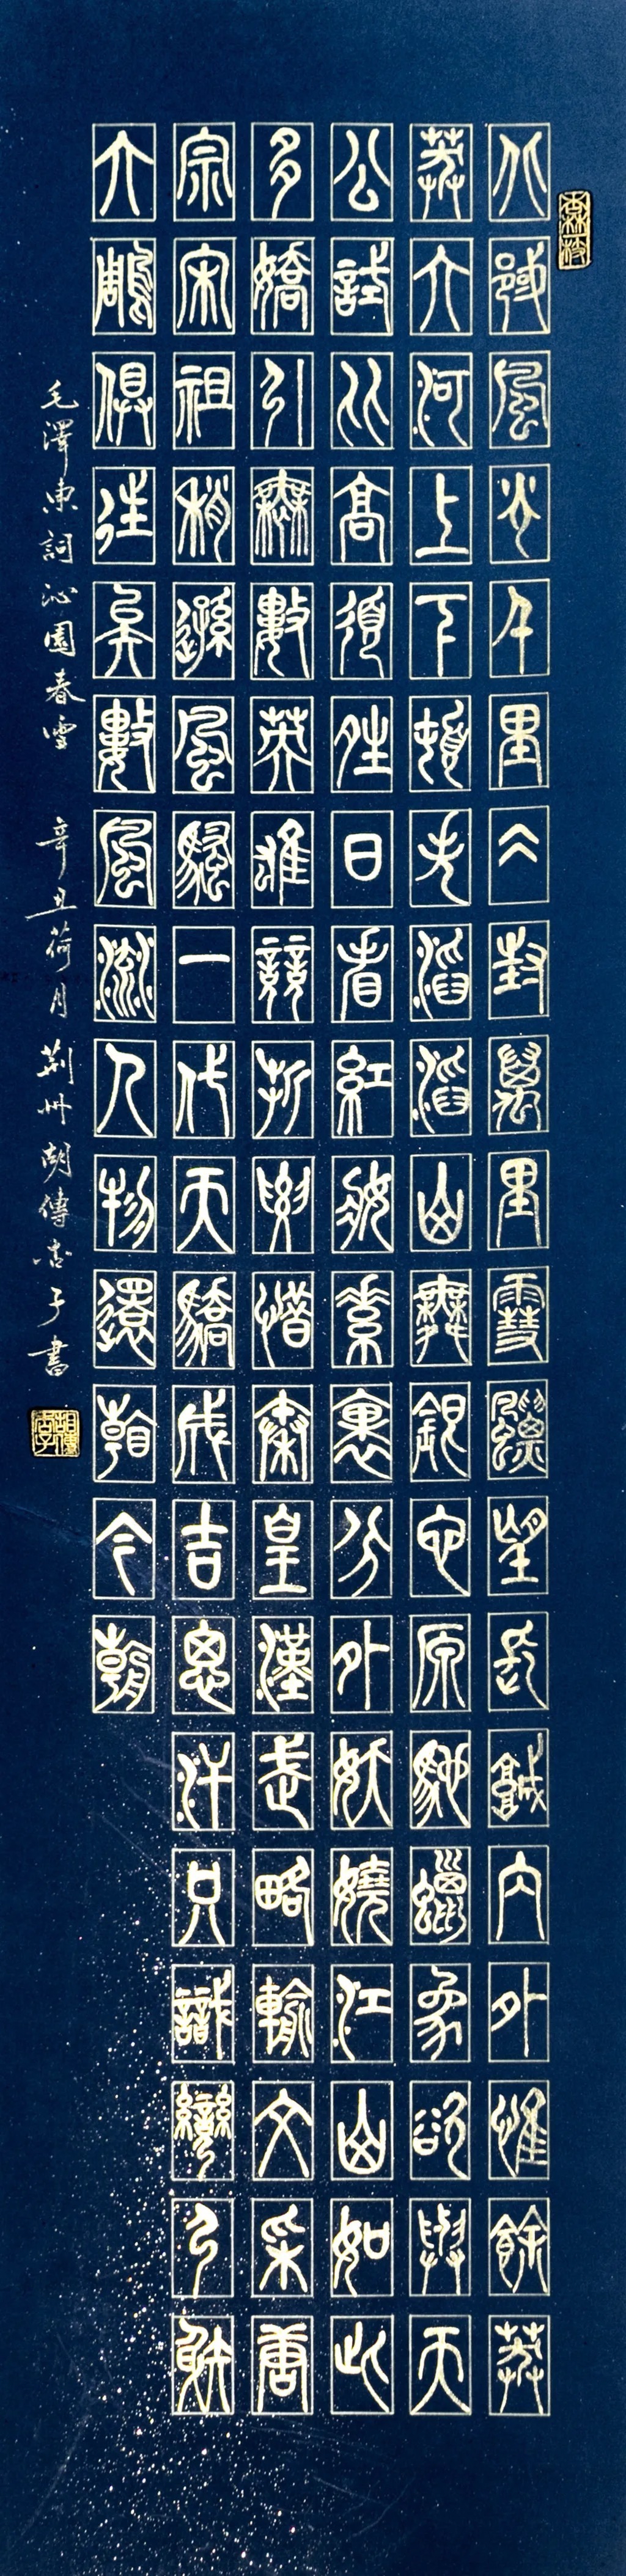 北國風光千里冰封萬里雪飄望長城内外惟餘莽
莽大河上下頓失滔滔山舞銀蛇原馳蠟象欲與天
公試比高須晴日看紅裝素裹分外妖嬈江山如此
多嬌引無數英雄競折要惜秦皇漢武略輸文采唐
宗宋祖稍遜風騷一代天驕成吉思汗只識彎弓射
大雕俱往矣數風流人物還看今朝
毛澤東詞沁園春雪 辛丑荷月 荆州胡傳子書